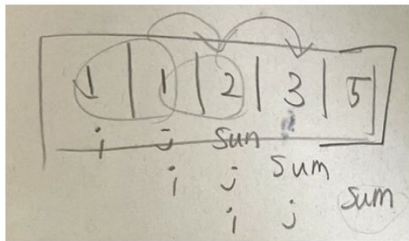 1 | 1 | 2 | 3 | 5
i j sum
i j sum
i j sum